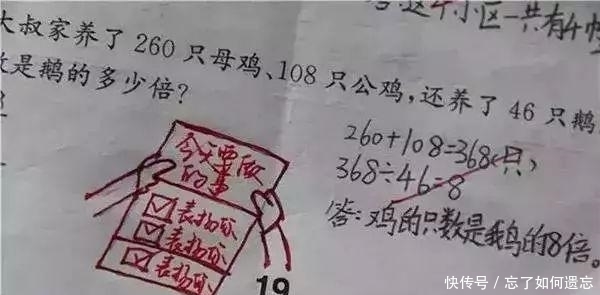 这个小区一共有4幢
大叔家养了260只母鸡、108只公鸡,还养了46只鹅
数是鹅的多少倍?
260+108=368(只)
368÷46=8
答:鸡的只数是我鸟的8倍。
今天要做
的事
☑表扬你
☑表扬你
☑表扬你
19
快传号/忘了如何遗忘